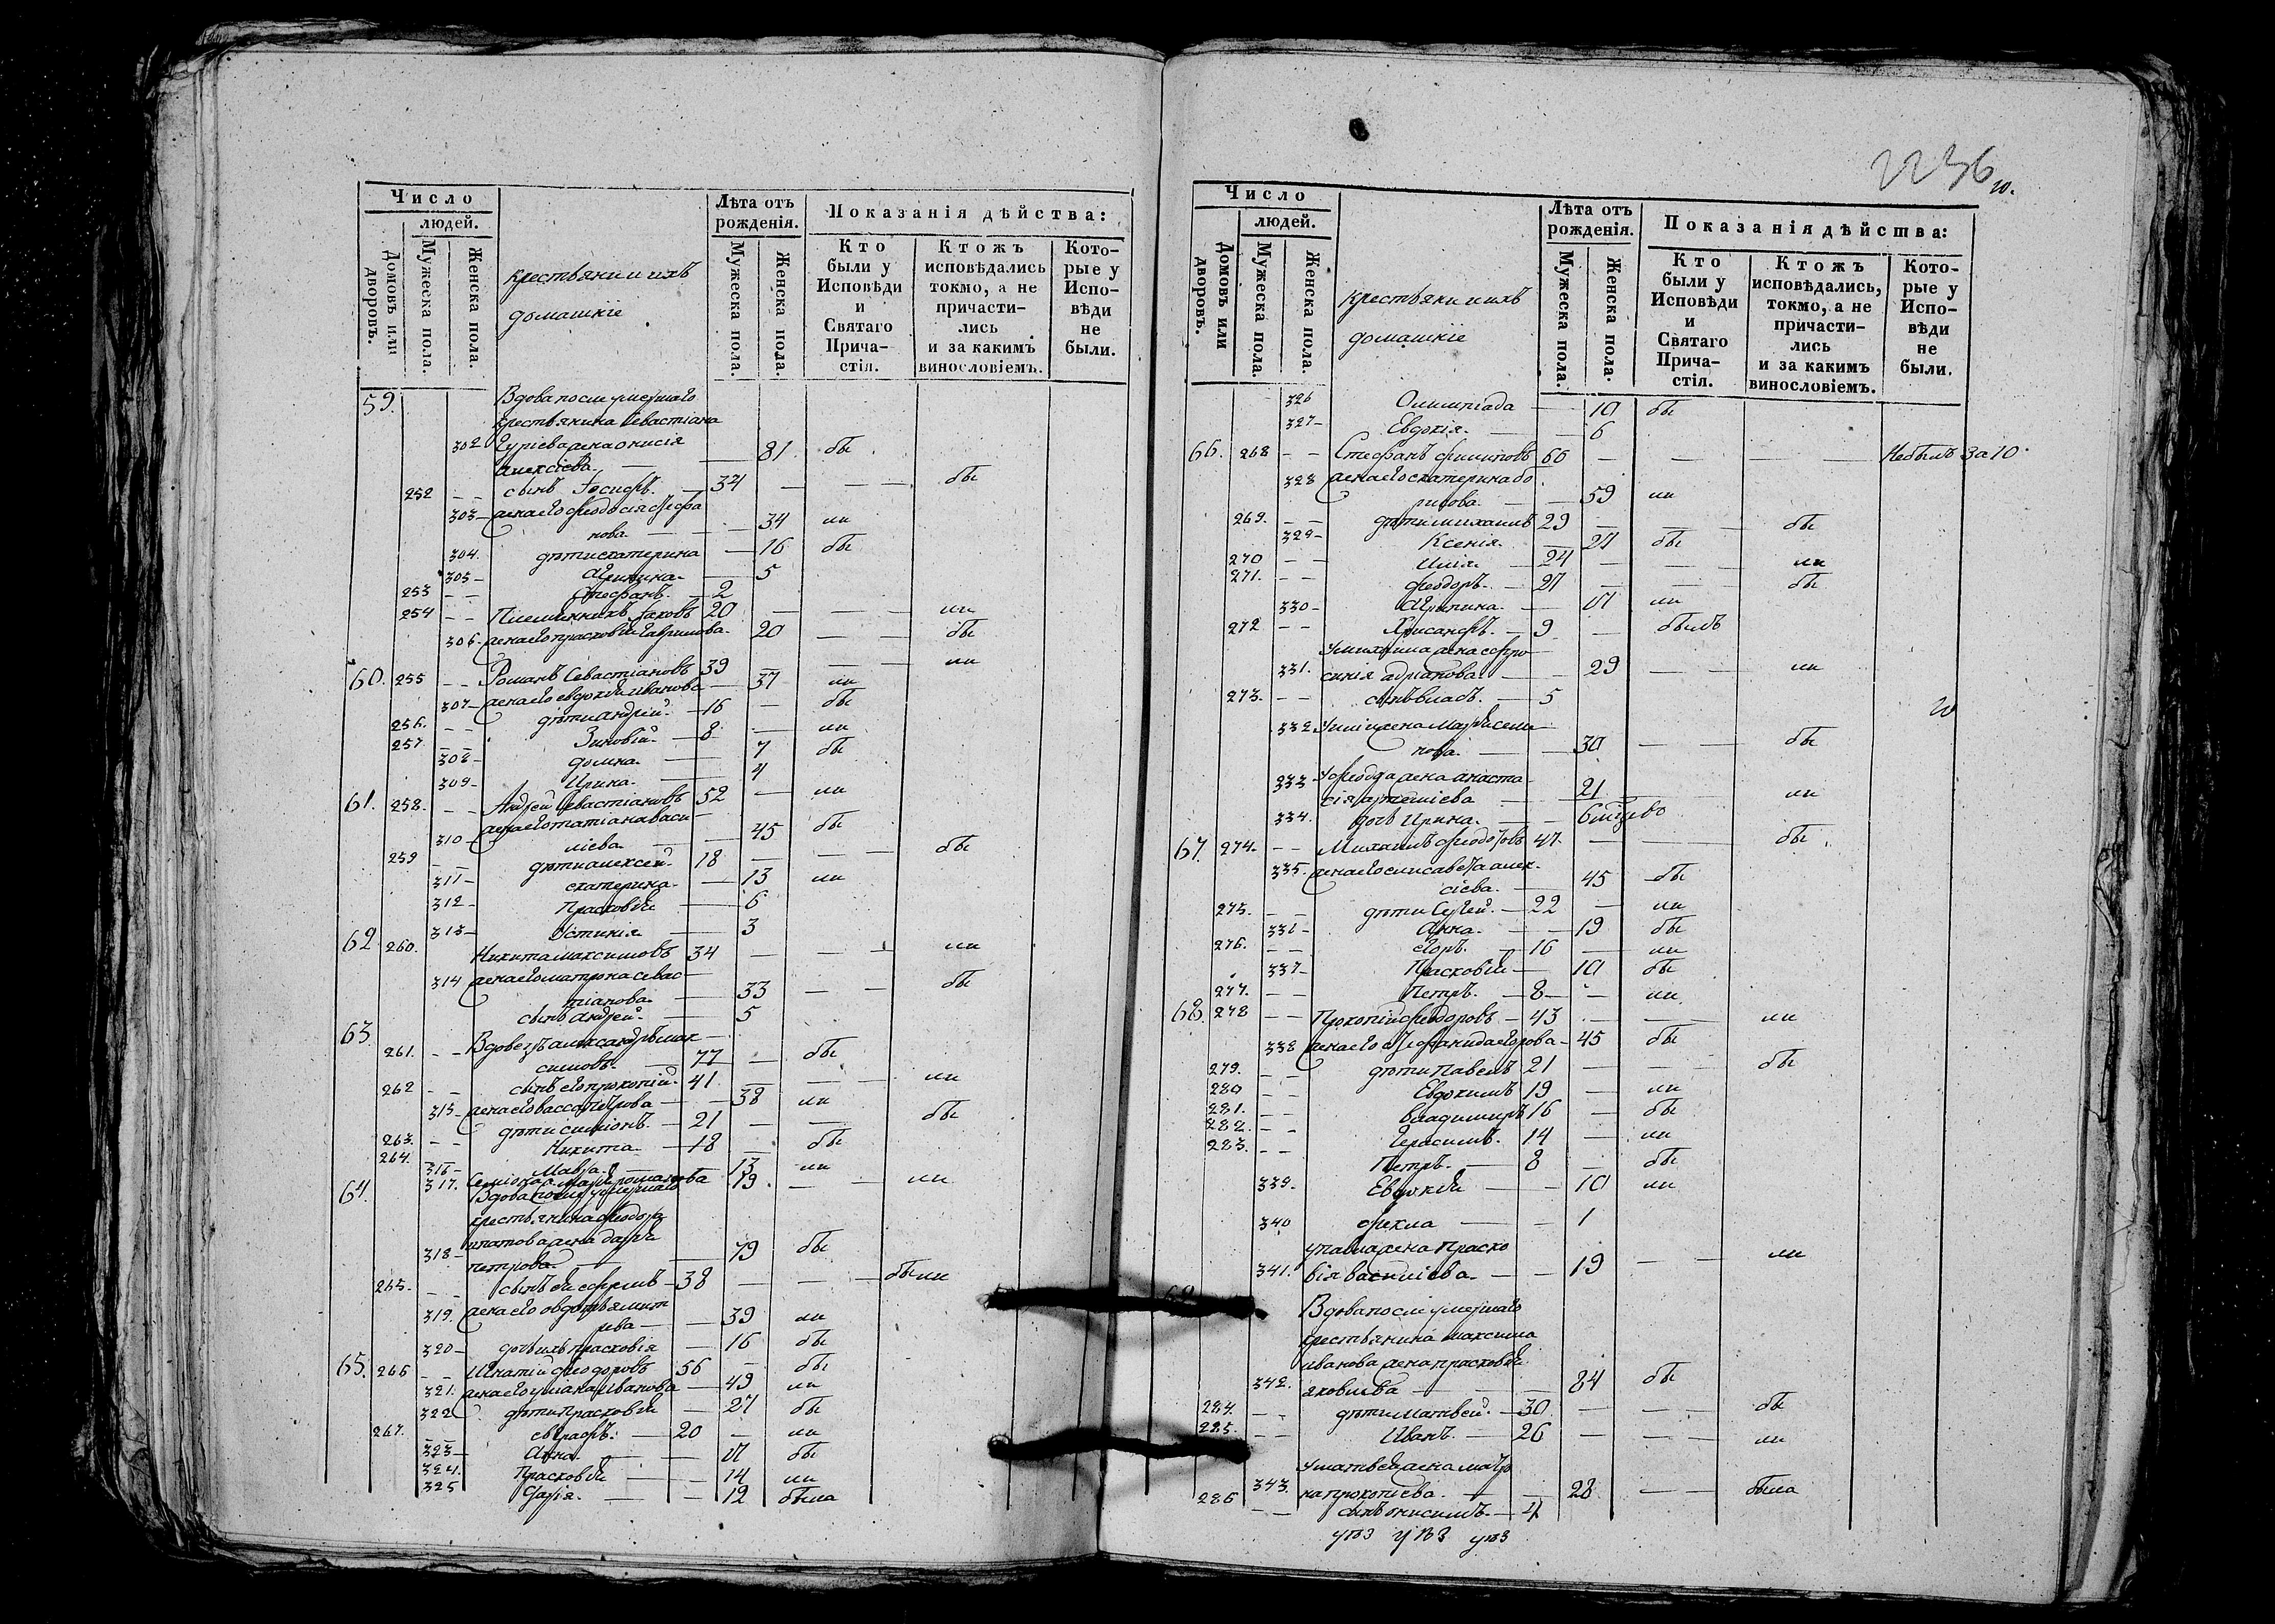 Число
людей.
Домовъ или дворовъ.
Мужеска пола.
Женска пола.
крестьяни и ихъ
домашкіе
Лѣта отъ рожденія.
Мужеска пола.
Женска пола.
Показанія дѣйства:
Кто были у Исповѣди и Святаго Прича-стія.
Ктожъ исповѣдались токмо, а не причасти-лись и за какимъ винословіемъ.
Кото-рые у Испо-вѣди не были.
59. Вдова после умершаго
крестьянина Севастіана
302 Гуріева жена Онисія
Алексіева. — — 81 бы
252 - - сынъ Іосифъ. — 34 — — — бы
303 - жена его Феодосія Трофа
нова — — 34 ли
304. дѣти екатерина — 16 бы
305 - Агрипина — 5
253 - - Стефанъ. — 2
254 - - Племянникъ Іаковъ 20 — — — ли
306 - жена его прасковія Гаврилова. 20 — — бы
60. 255 - - Романъ Севастіановъ 39 — — — ли
307 - жена его евдокія иванова — 37 ли
256. - - дѣти Андрей. — 16 — бы
257 - - Зиновій — 8 — ли
308 - домна. — 7 бы
309 - Ирина. — 4
61. 258. - - Андрей Севастіановъ 52 — ли
310 - жена его татіана васи
ліева — 45 бы
259 - - дѣти алексей. 18 — — — бы
311 - екатерина. — 13 ли
312 - Прасковія — 6
313 - Устинія — 3
62 260. Никита максимовъ 34 — — — ли
314 жена его матрона Севас
тианова. — 33 — — бы
сынъ андрей. — 5
63. 261. - - Вдовецъ александръ мак
симовъ. — 77 — бы
262 - - сынъ его прокопій. 41 — — — ли
315 - жена его васса Петрова — 38 ли
263. - - дѣти симіонъ. — 21 — — бы
264. - - Никита. — 18 — бы
316 - Мавра. — 13 ли
317. Семіона ж. марія романова 19 — — ли
64. Вдова после умершаго
крестьянина феодора
318 - ипатова жена дарія
петрова. — 79 бы
265. - - сынъ ея ефремъ — 38 — — — были
319. жена его овдотья мит
рева — — 39 ли
320 - дочь ихъ прасковія — 16 бы
65. 266 - - Игнатій феодоровъ 56 — бы
321. жена его уліана Иванова — 49 ли
322 дѣти Прасковія — 27 бы
267. - - евграфъ. — 20 — ли
323 - Анна. — 17 бы
324. Прасковія — 14 ли
325 Дарія. — — 12 была
2236
10.
Число
людей.
Домовъ или дворовъ.
Мужеска пола.
Женска пола.
крестьяни и ихъ
домашкіе
Лѣта отъ рожденія.
Мужеска пола.
Женска пола.
Показанія дѣйства:
Кто были у Исповѣди и Святаго Прича-стія.
Ктожъ исповѣдались, токмо, а не причасти-лись и за какимъ винословіемъ.
Кото-рые у Испо-вѣди не были.
326 Олимпіада — 10 бы
327 - Евдокія. — 6
66. 268 - - Стефанъ филиповъ 66 — — — Небылъ за 10.
328 жена его екатерина бо
рисова. — 59 ли
269. - - дѣти михаилъ 29 — — — бы
329 - Ксенія. — 27 бы
270 - - Илія. — 24 — — ли
271. - - феодоръ. — 21 — — бы
330 - Агрипина. — 17 ли
272 - - Хрисанфъ. — 9 — былъ
У михаила жена ефро
331. синія адріанова — — 29 — — ли
273. - - сынъ власъ. — 5
332 У иліи жена Марія семи
нова. — — 30 — — бы
333 У феодора жена анаста
сія артеміева — 21 — ли
334. дочь Ирина. — —
67. 274. - - Михаилъ феодотовъ 47. — — бы
335. жена его елисавета алек
сіева. — 45 бы
275. - - дѣти Сергей. — 22 — ли
336 - Анна. — — 19 бы
276. - - егоръ. — 16 — ли
337 - Прасковія — 10 бы
277. - - Петръ. — 8 — — ли
68. 278 - - Прокопій феодоровъ — 43 — — ли
338 жена его степанида егорова — 45 бы
279. - - дѣти Павелъ 21 — — — бы
280 - - Евдокимъ 19 — ли
281. - - владимиръ 16 — бы
282. - - Герасимъ. 14 — ли
283. - - Петръ. — 8 — бы
339. Евдокія — — 10 ли
340 фекла — — 1
у павла жена Праско
341. вія василіева. — — 19 — — ли
Вдова после умершаго
крестьянина максима
иванова жена прасковія
342. яковлева — — 84 бы
284. - - дѣти матвей. — 30 — — — бы
285. - - Иванъ. — 26 — — — ли
У матвея жена матро
343. на прокопіева. — — 28 — — была
286 - - сынъ онисимъ. — 4